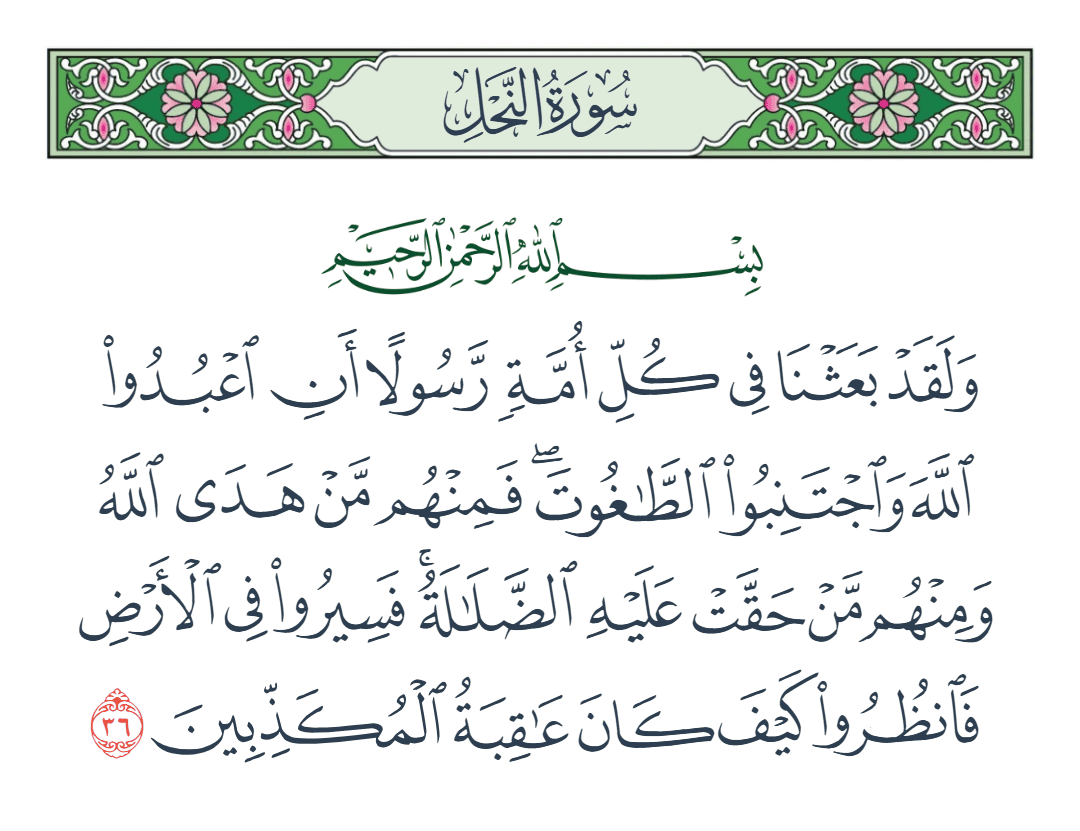 سُورَةُ النَّحْلِ
بِسْمِ ٱللَّهِ ٱلرَّحْمَٰنِ ٱلرَّحِيمِ
وَلَقَدْ بَعَثْنَا فِى كُلِّ أُمَّةٍ رَّسُولًا أَنِ ٱعْبُدُوا۟
ٱللَّهَ وَٱجْتَنِبُوا۟ ٱلطَّـٰغُوتَ ۖ فَمِنْهُم مَّنْ هَدَى ٱللَّهُ
وَمِنْهُم مَّنْ حَقَّتْ عَلَيْهِ ٱلضَّلَـٰلَةُ ۚ فَسِيرُوا۟ فِى ٱلْأَرْضِ
فَٱنظُرُوا۟ كَيْفَ كَانَ عَـٰقِبَةُ ٱلْمُكَذِّبِينَ ٣٦